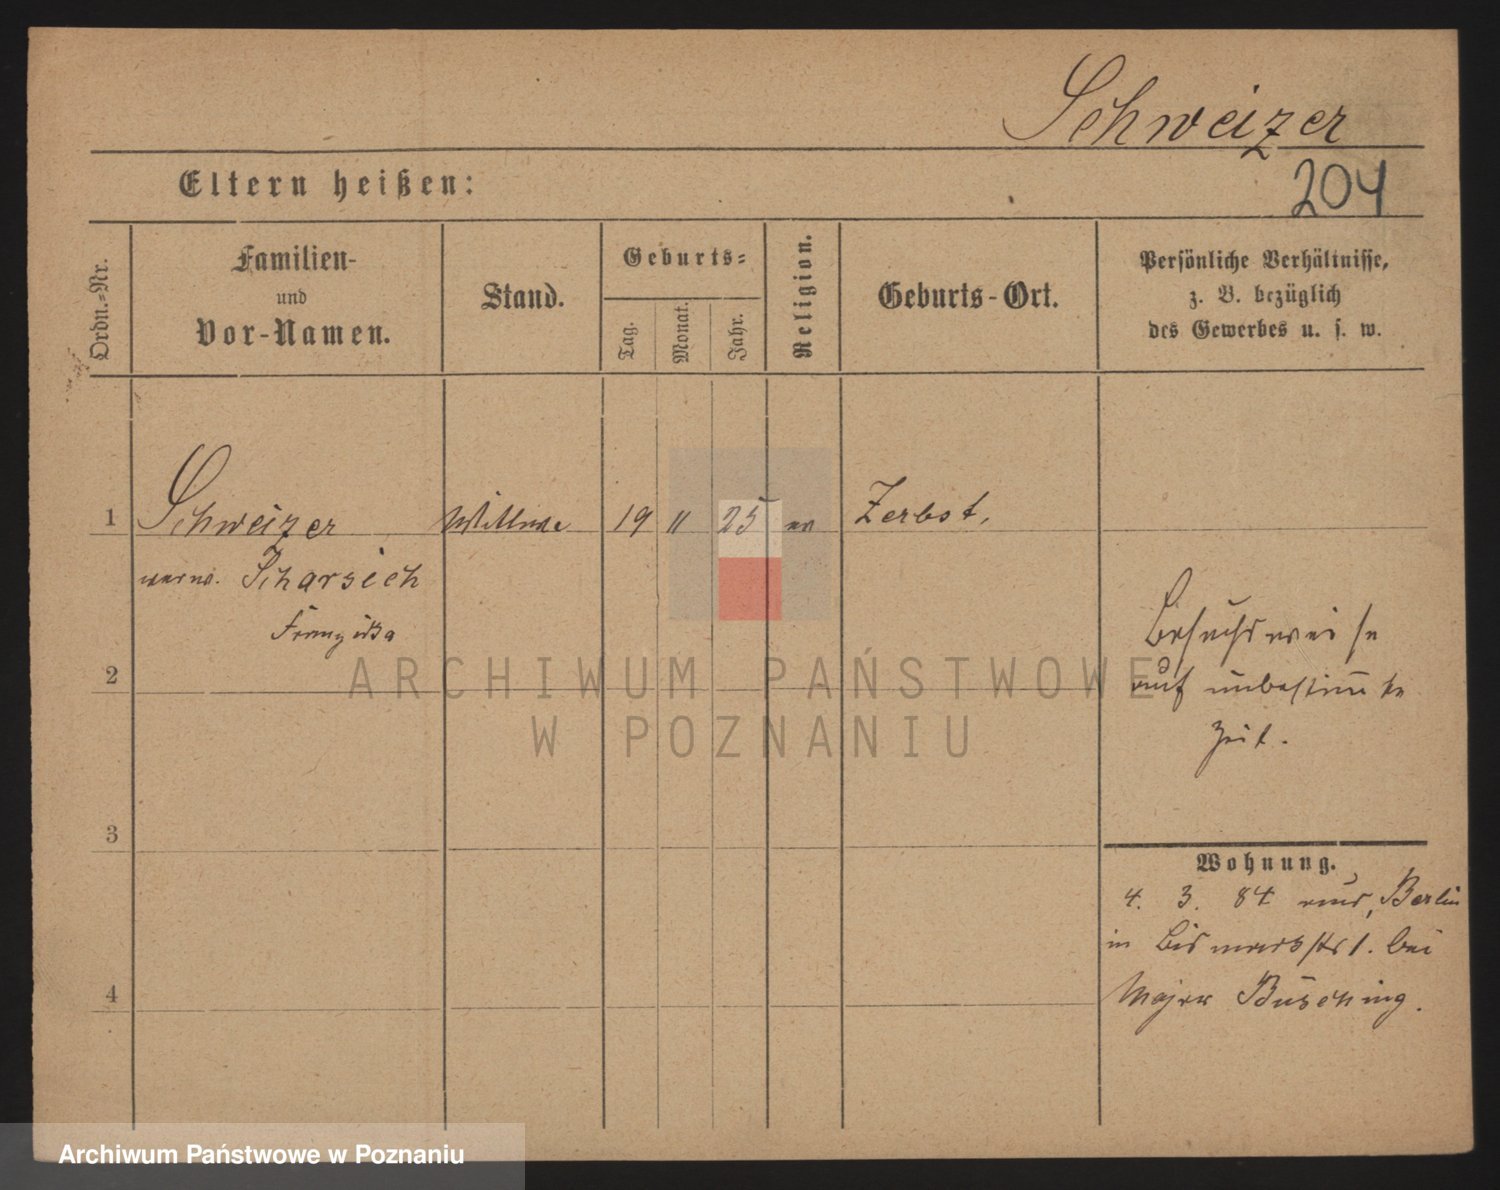 Schweizer
Eltern heißen:
204
Ordn.=Nr.
Familien-
und
Vor-Namen.
Stand.
Geburts=
Tag.
Monat.
Jahr.
Religion.
Geburts-Ort.
Persönliche Verhältnisse,
z. B. bezüglich
des Gewerbes u. s. w.
1 Schweizer Wittwe 19 " 25 ev Zerbst.
verw. Scharsich
Franziska
Besuchsweise
2
auf unbestimmte
Zeit.
ARCHIWUM PAŃSTWOWE
W POZNANIU
3
Wohnung.
4. 3. 84 aus, Berlin
in Bismarkstr 1. bei
4
Major Büsching.
Archiwum Państwowe w Poznaniu